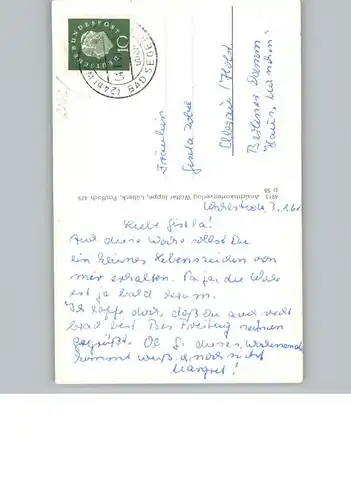 DEUTSCHE BUNDESPOST
10
(24b) W
BAD SEGEB
Fräulein
Gisela
Berliner Damm
4915 Ansichtskartenverlag Walter Joppe, Lübeck, Postfach 425
D 58
Wahlstedt, 3.1.61
Liebe Gisela!
Auf diese Woche sollst Du
ein kleines Lebenszeichen von
mir erhalten. Na ja die Woche
ist ja bald herum.
Ich hoffe doch, daß Du auch recht
brav bist. Bis Freitag
gegrüßt. Ob G. dieses Wochenende
kommt weiß ich noch nicht
Margret!